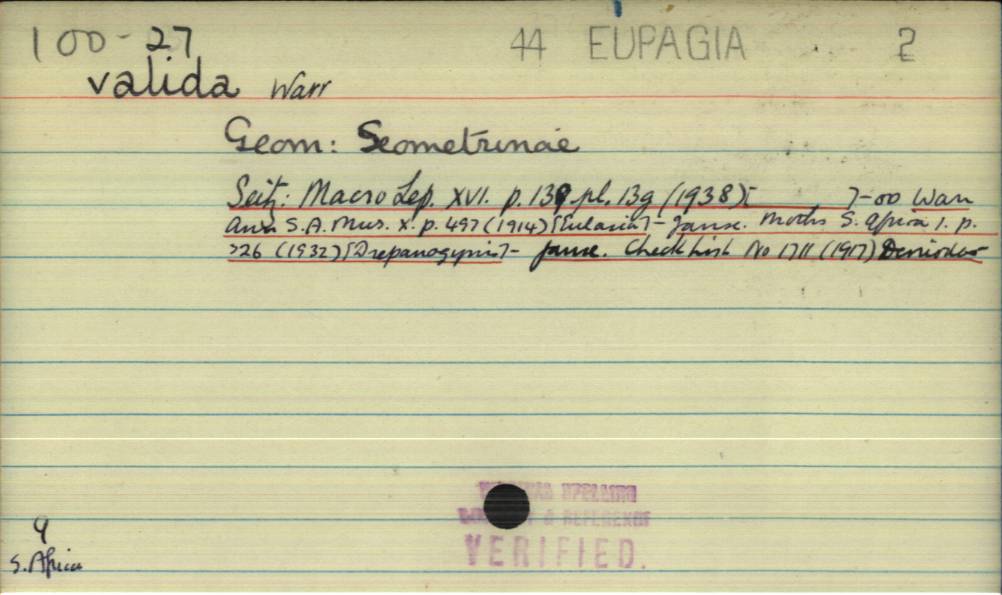 100-27 44 EUPAGIA 2
valida Warr
Geom: Geometrinae
Seitz: Macro Lep. XVI. p. 139 pl. 13g (1938): 7-00 Warr
Ann S.A. Mus. X. p. 497 (1914) [Eularia]- Janse. Moths S. Africa 1. p.
226 (1932) [Drepanogynis]- Janse. Check List No 1711 (1917)
SPELLING
& REFERENCE
VERIFIED.
9
S. Africa